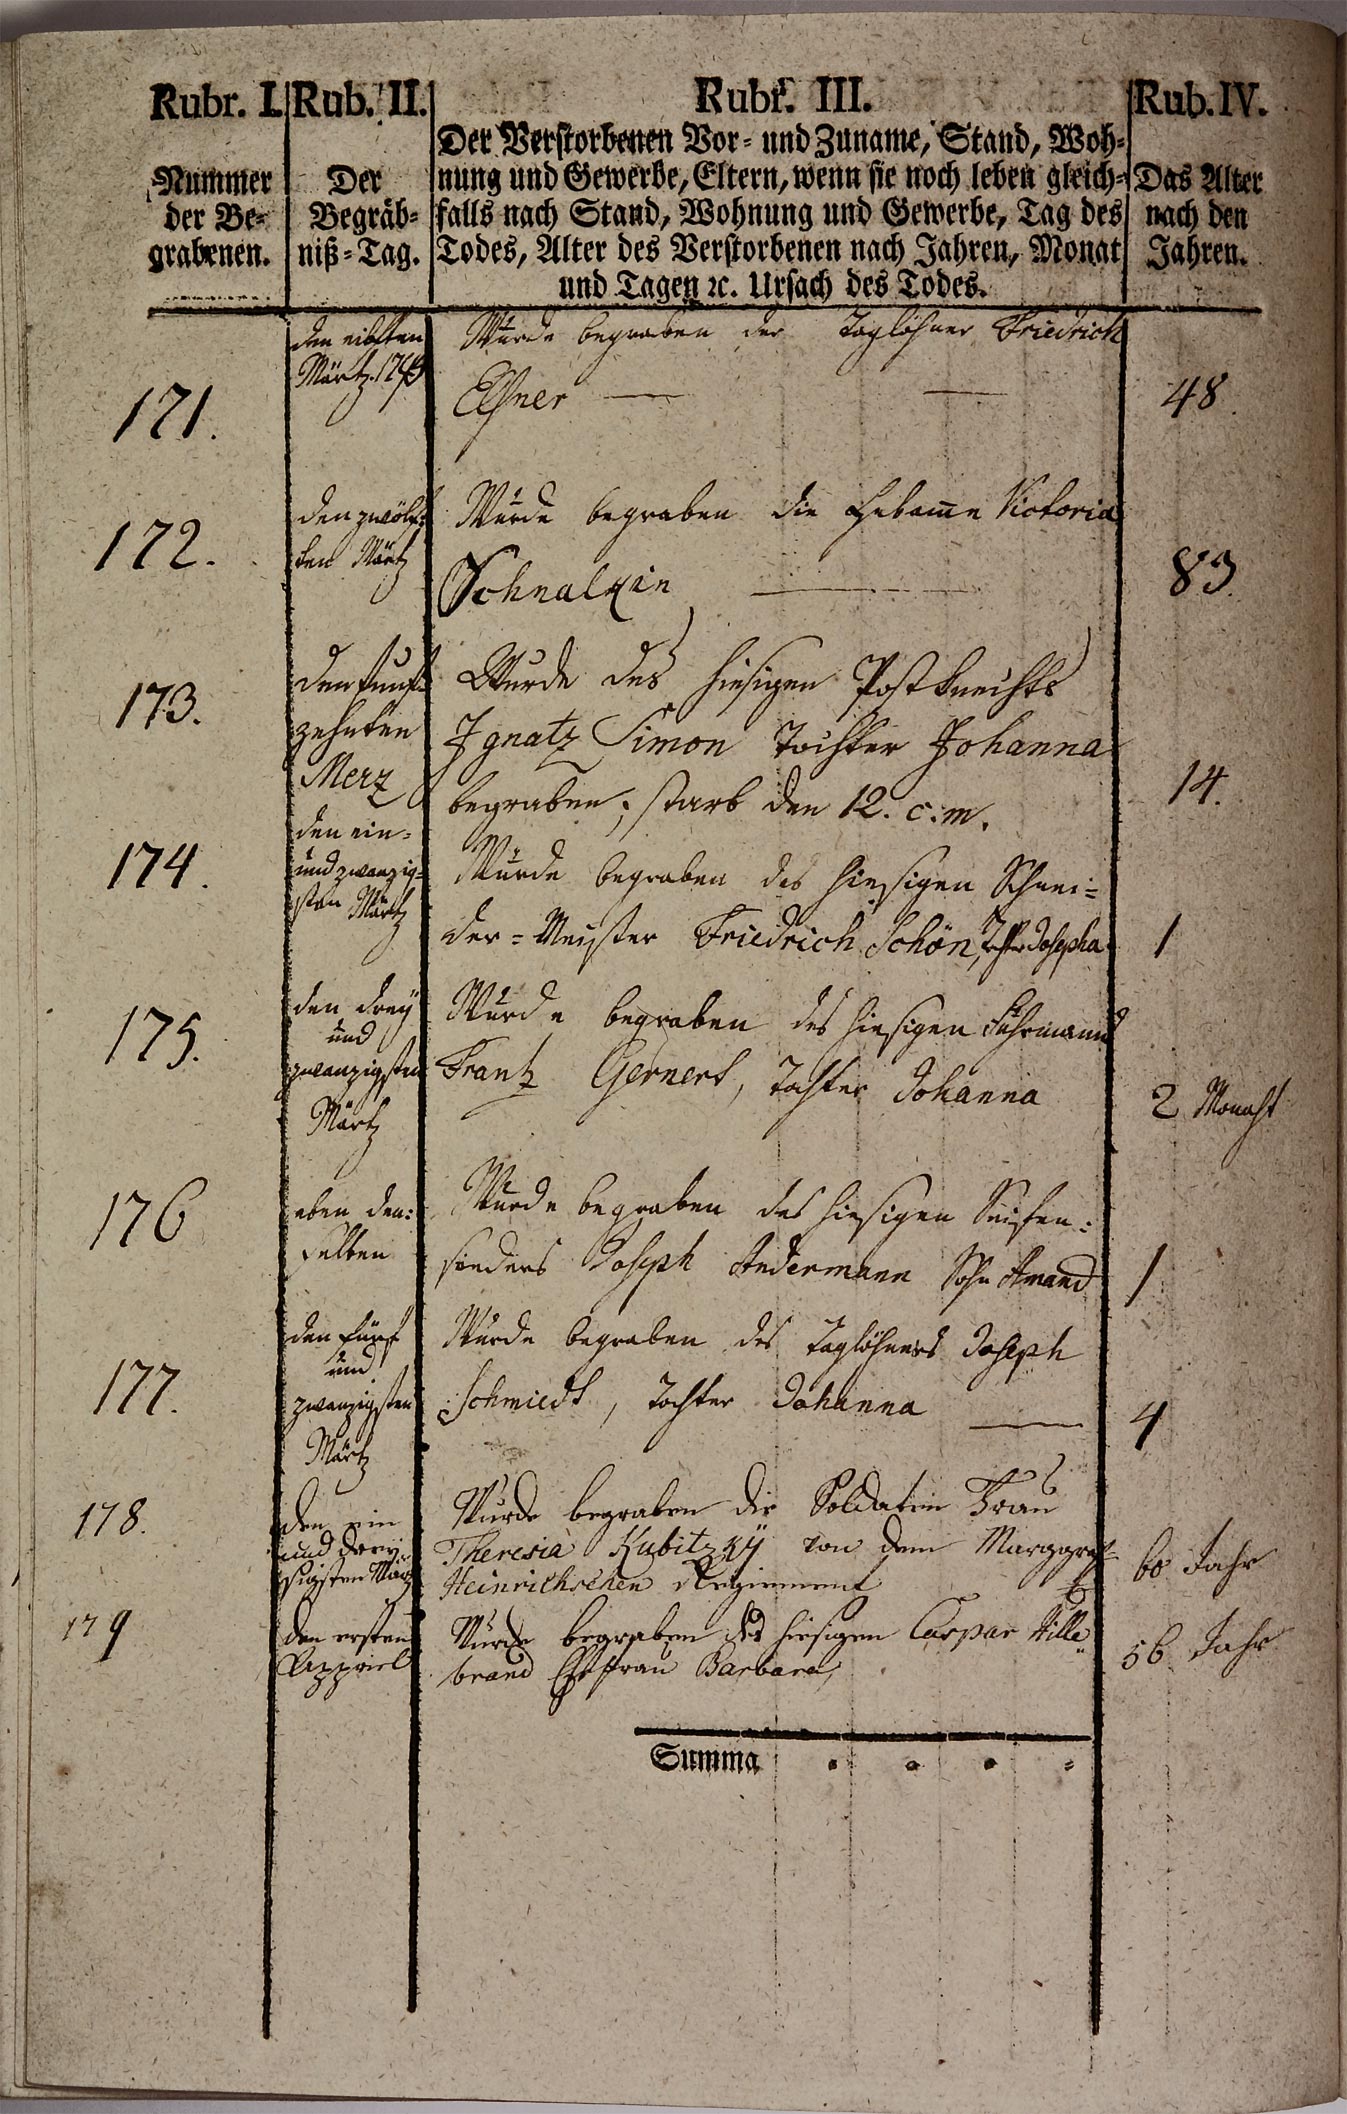 Rubr. I. Rub. II. Rubr. III. Rub. IV.
Nummer
der Be-
grabenen.
Der
Begräb-
niß-Tag.
Der Verstorbenen Vor- und Zuname, Stand, Woh-
nung und Gewerbe, Eltern, wenn sie noch leben gleich-
falls nach Stand, Wohnung und Gewerbe, Tag des
Todes, Alter des Verstorbenen nach Jahren, Monat
und Tagen ꝛc. Ursach des Todes.
Das Alter
nach den
Jahren.
171.
den eilften
Märtz
Wurde begraben der Taglöhner Friedrich
Elsner
48
172.
den zwölf-
ten Märtz
Wurde begraben die Hebame Victoria
Schnalkin
83.
173.
den funf-
zehnten
Merz
Wurde des hiesigen Postknechts
Ignatz Simon Tochter Johanna
begraben; starb den 12. c. m.
14.
174.
den ein-
und zwanzig-
sten Märtz
Wurde begraben des hiesigen Schnei-
der-Meister Friedrich Schön, Josepha
1
175.
den dreÿ
und
zwanzigsten
Märtz
Wurde begraben des hiesigen Fuhrmanns
Frantz Gernert, Tochter Johanna
2 Monaht
176
eben den-
selben
Wurde begraben des hiesigen Seifen-
sieders Joseph Andermann Sohn Amand
1
177.
den fünf
und
zwanzigsten
Märtz
Wurde begraben des Taglöhners Joseph
Schmiedt, Tochter Johanna
4
178.
den ein
und drey-
sigsten März
Wurde begraben die Soldatin Frau
Theresia Kubitzkÿ von dem Marggraf-
Heinrichschen Regiement
60 Jahr
179
den ersten
Appriel
Wurde begraben des hiesigen Caspar Hille-
brand Ehefrau Barbara,
56 Jahr
Summa